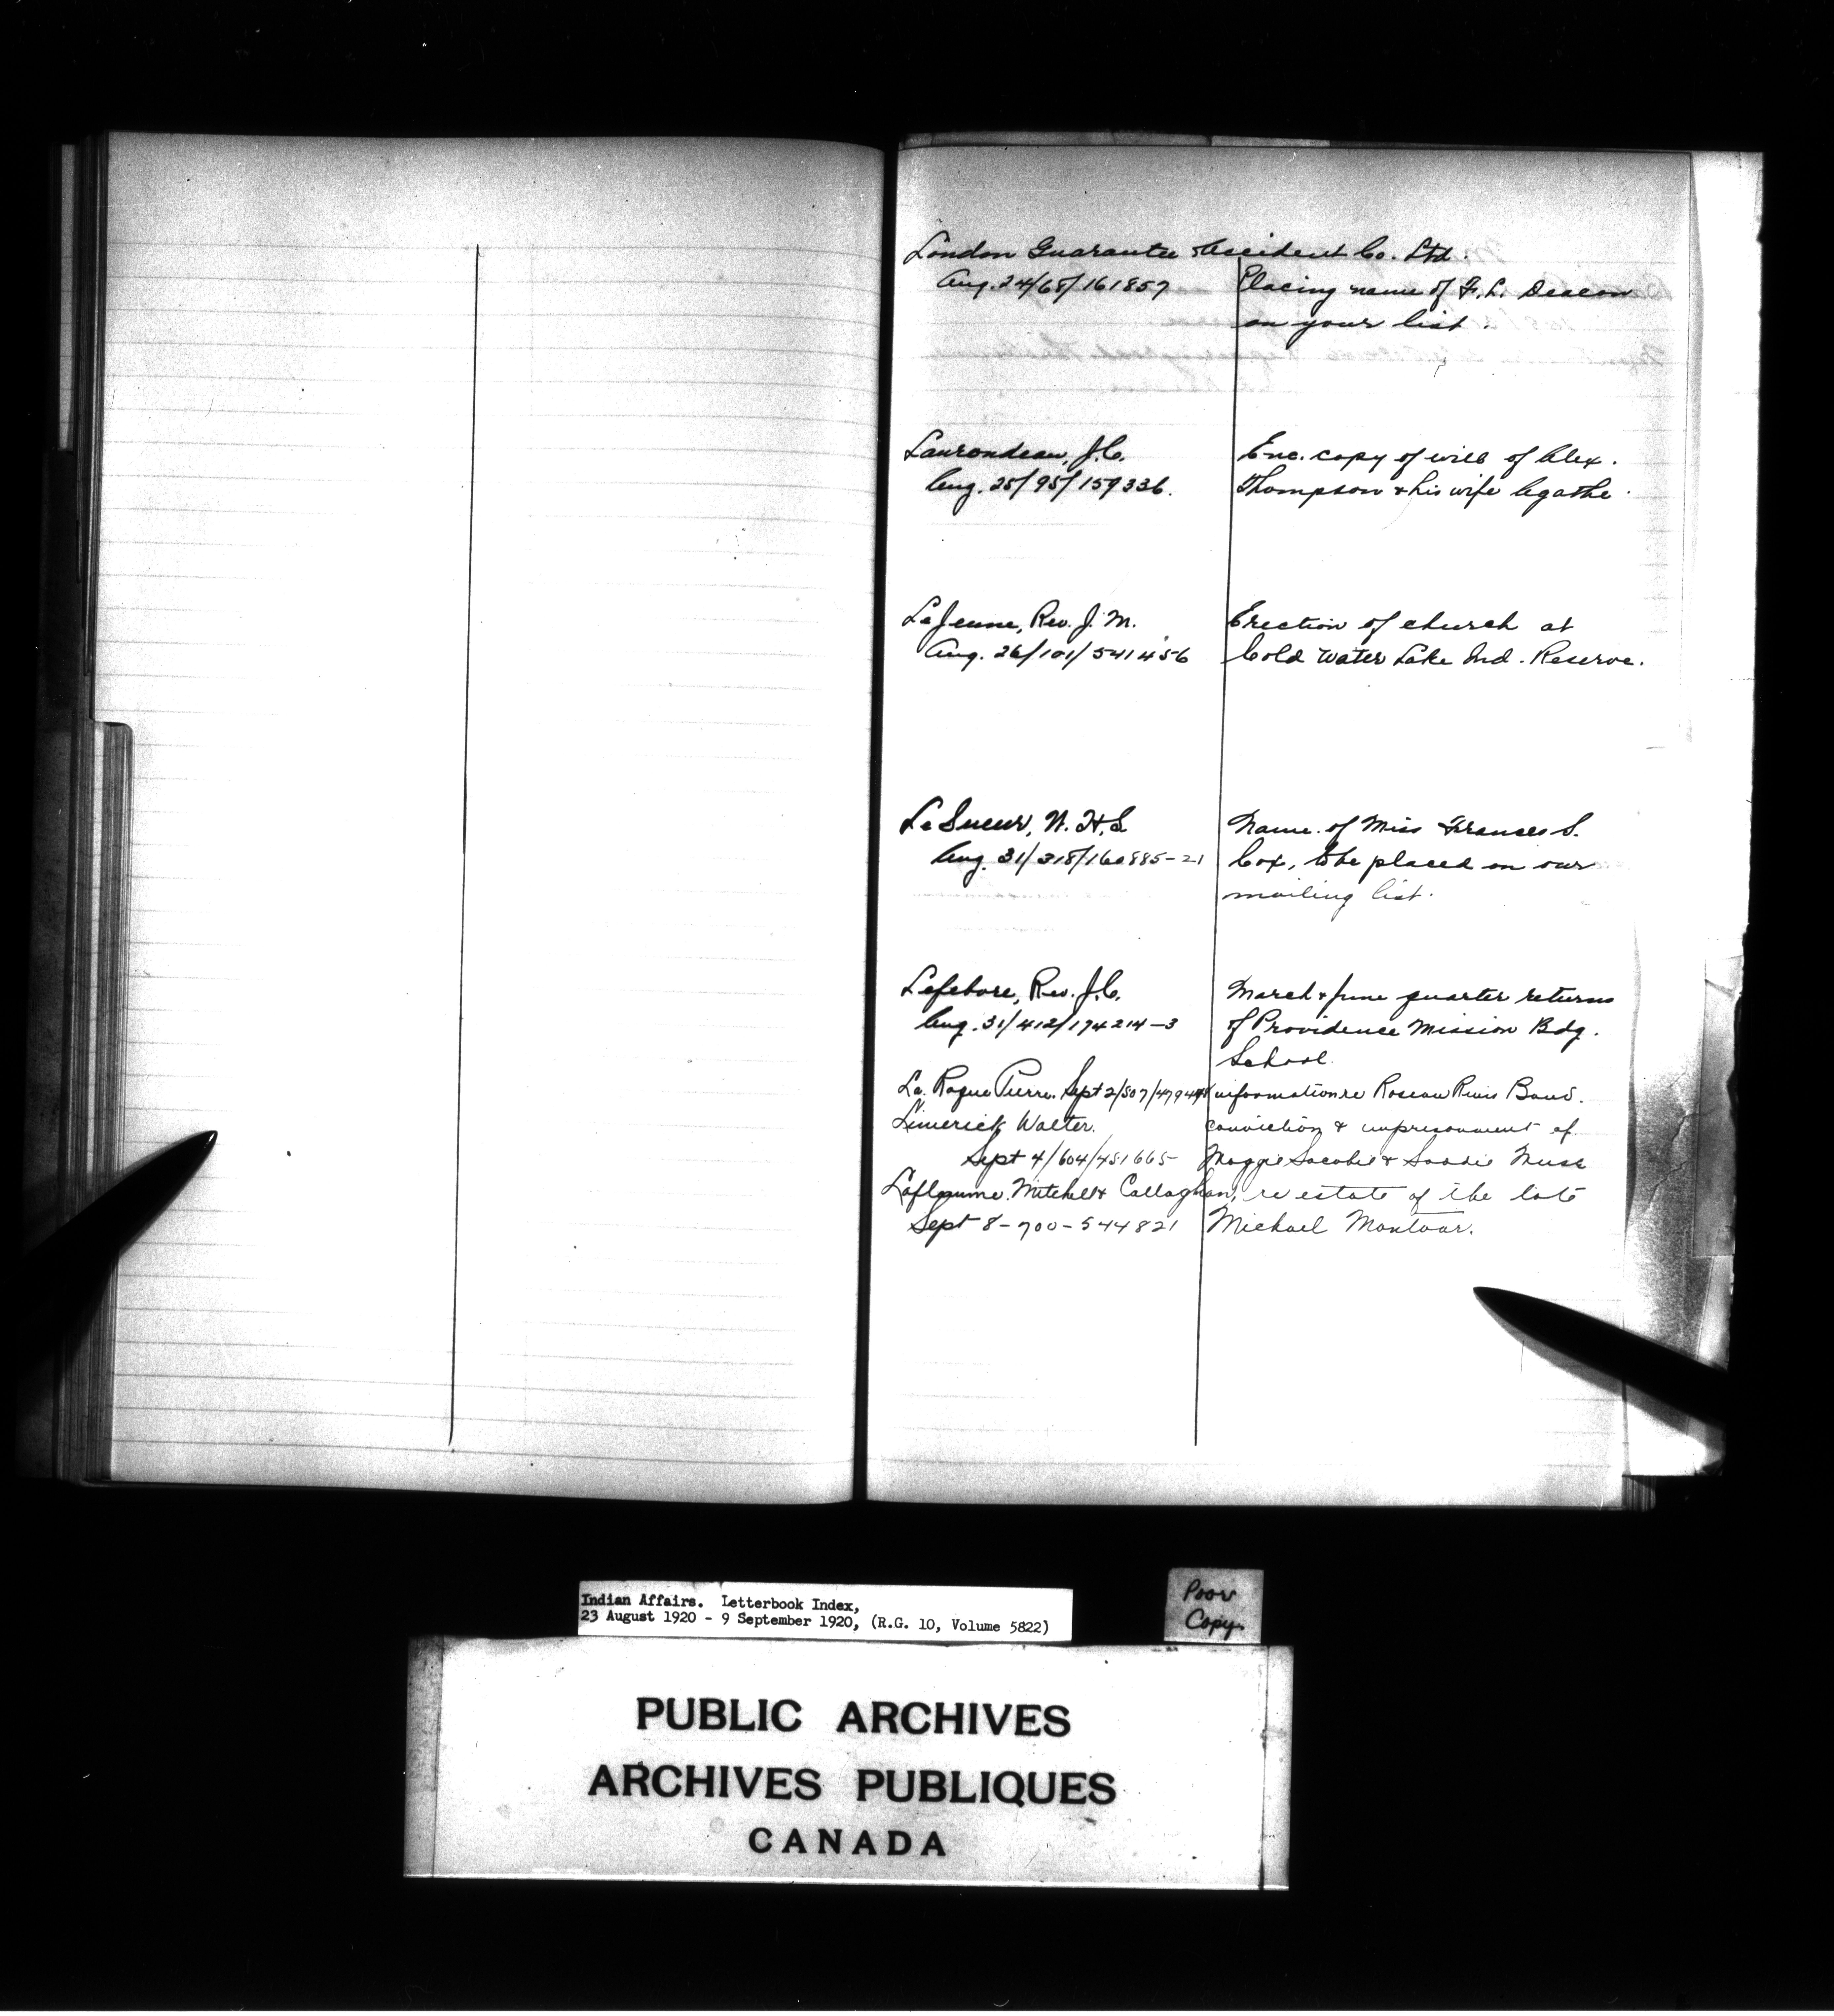 London Guarantee & Accident Co. Ltd.
Aug. 24/68/161857 Placing name of F. L. Deacon
on your list.
Laurondeau, J.C. Enc. copy of will of Alex.
Aug. 25/95/159336. Thompson & his wife Agathe.
LeJeune, Rev. J. M. Erection of church at
Aug. 26/101/541456 Cold Water Lake Ind. Reserve.
LeSueur, W. H. S. Name of Miss Frances S.
Aug. 31/318/160885-21 Cox, to be placed on our
mailing list.
Lefebvre, Rev. J.C. March & June quarter returns
Aug. 31/412/194214-3 of Providence Mission Bdg.
School.
La Roque Pierre. Sept 2/507/ information re Roseau River Band.
Limerick Walter. conviction & imprisonment of
Sept 4/604/451665 Maggie Sacobie & Muse
Laflamme, Mitchell & Callaghan, re estate of the late
Sept 8-700-544821 Michael Montour.
Indian Affairs. Letterbook Index,
23 August 1920 - 9 September 1920, (R.G. 10, Volume 5822)
Poor
Copy
PUBLIC ARCHIVES
ARCHIVES PUBLIQUES
CANADA